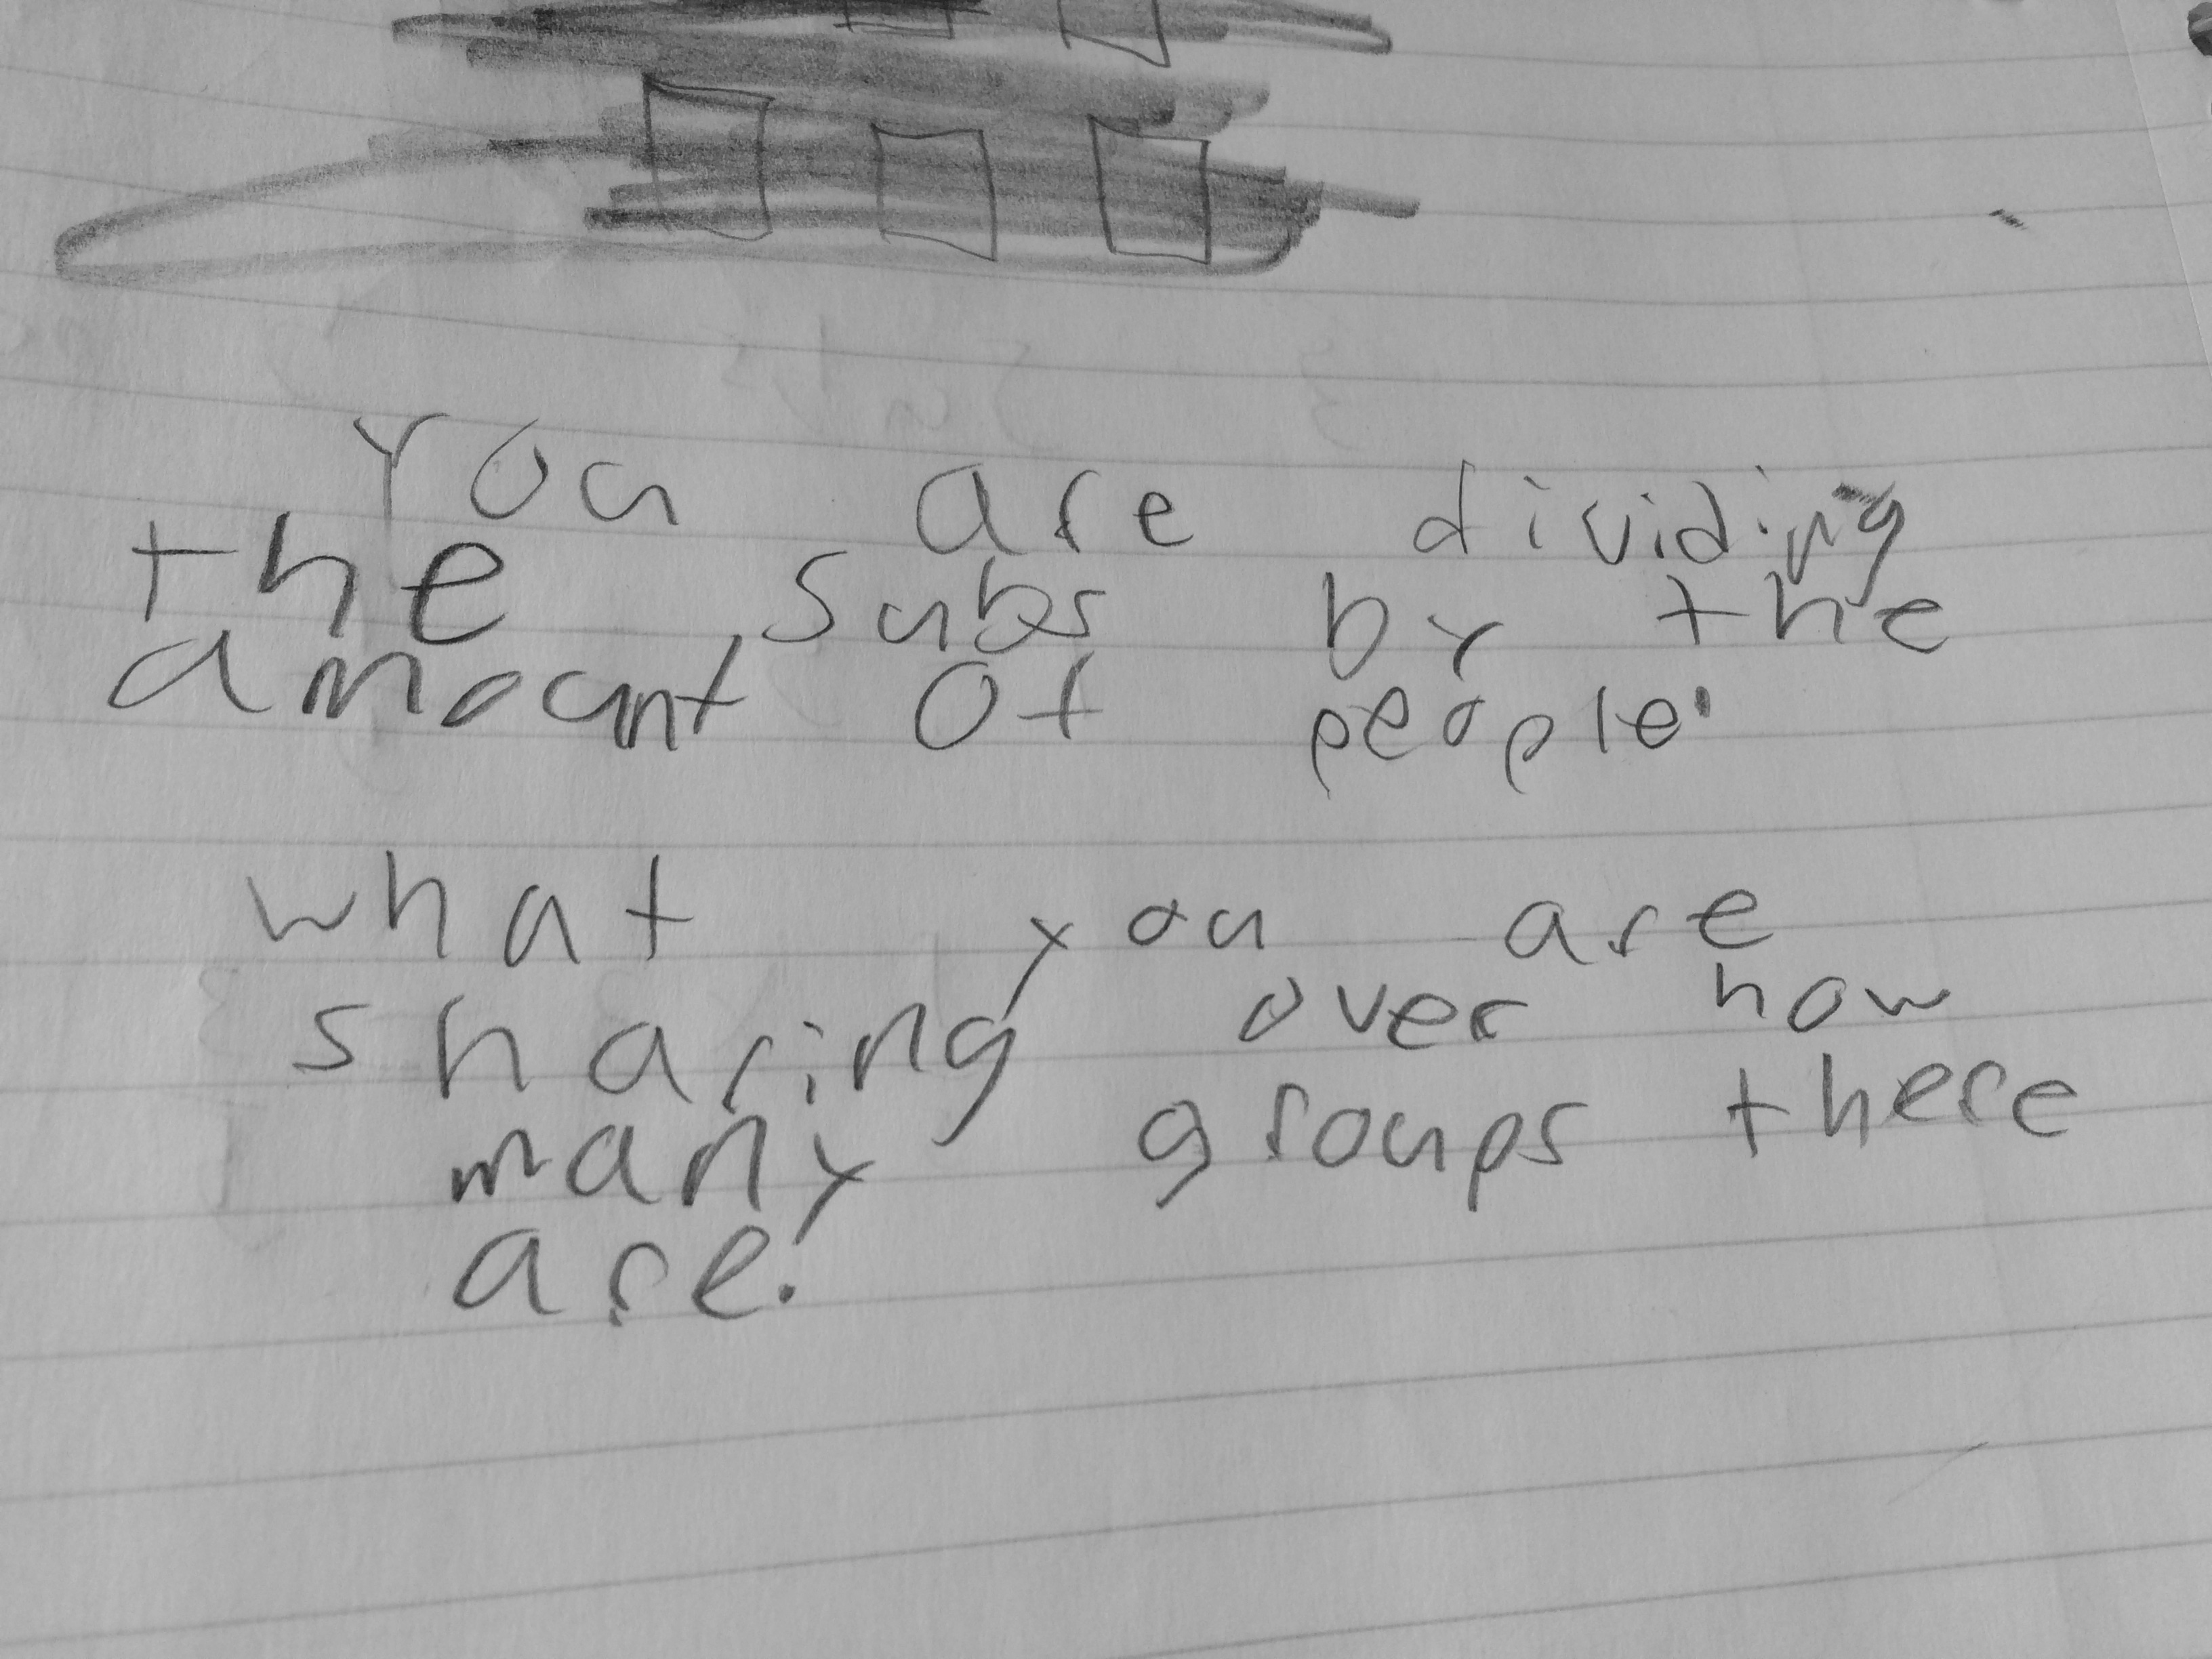 You are dividing
the subs by the
amount of people.
what you are
sharing over how
many groups there
are.